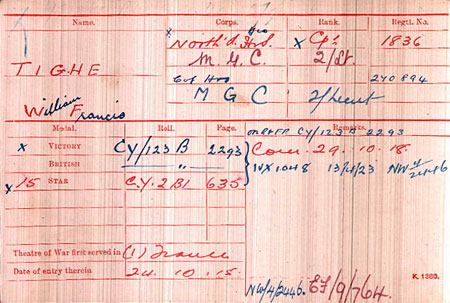 Name. Corps. Rank. Regtl. No.
x North'd. Hrs. x Cpl 1836
TIGHE M.G.C. 2/Lt.
Cpl Hrs 270894
William Francis M G C 2/Lieut
Medal. Roll. Page. Remarks.
on RFR CY/123 B 2293
x VICTORY CY/123 B 2293 Com. 29.10.18.
BRITISH " " NX 1048 13/4/23
x 15 STAR C.Y. 2 B1 635
Theatre of War first served in (1) France
Date of entry therein 24.10.15.
NW/4/2446. EF/9/764. K. 1380.